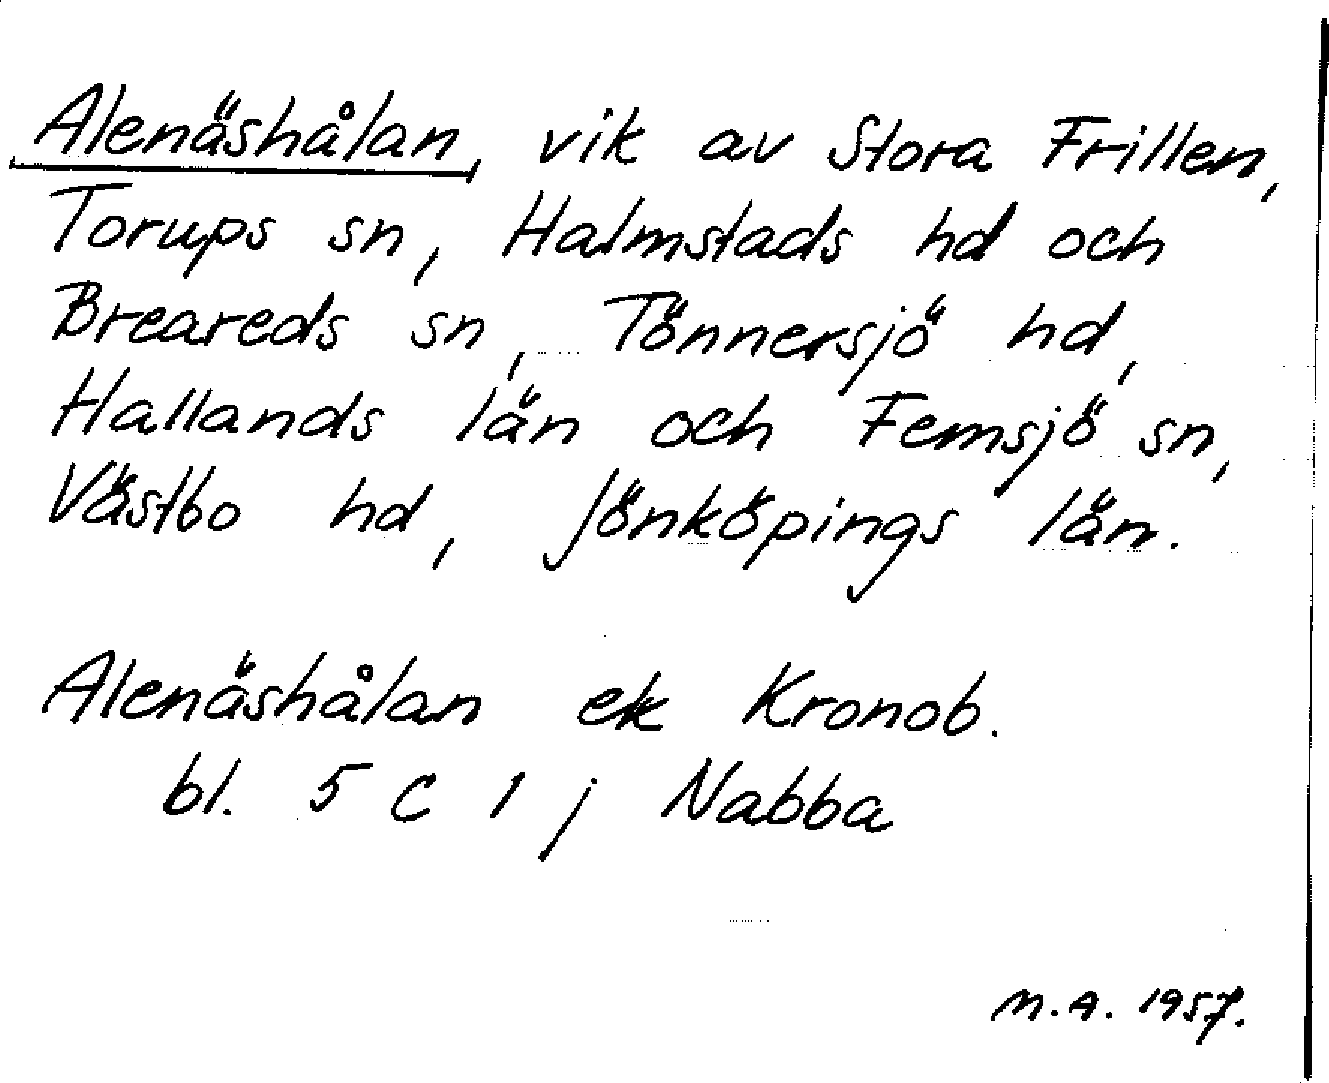 Alenäshålan, vik av Stora Frillen,
Torups sn, Halmstads hd och
Breareds sn, Tönnersjö hd,
Hallands län och Femsjö sn,
Västbo hd, Jönköpings län.
Alenäshålan ek Kronob.
bl. 5 C 1 j Nabba
M.A. 1957.